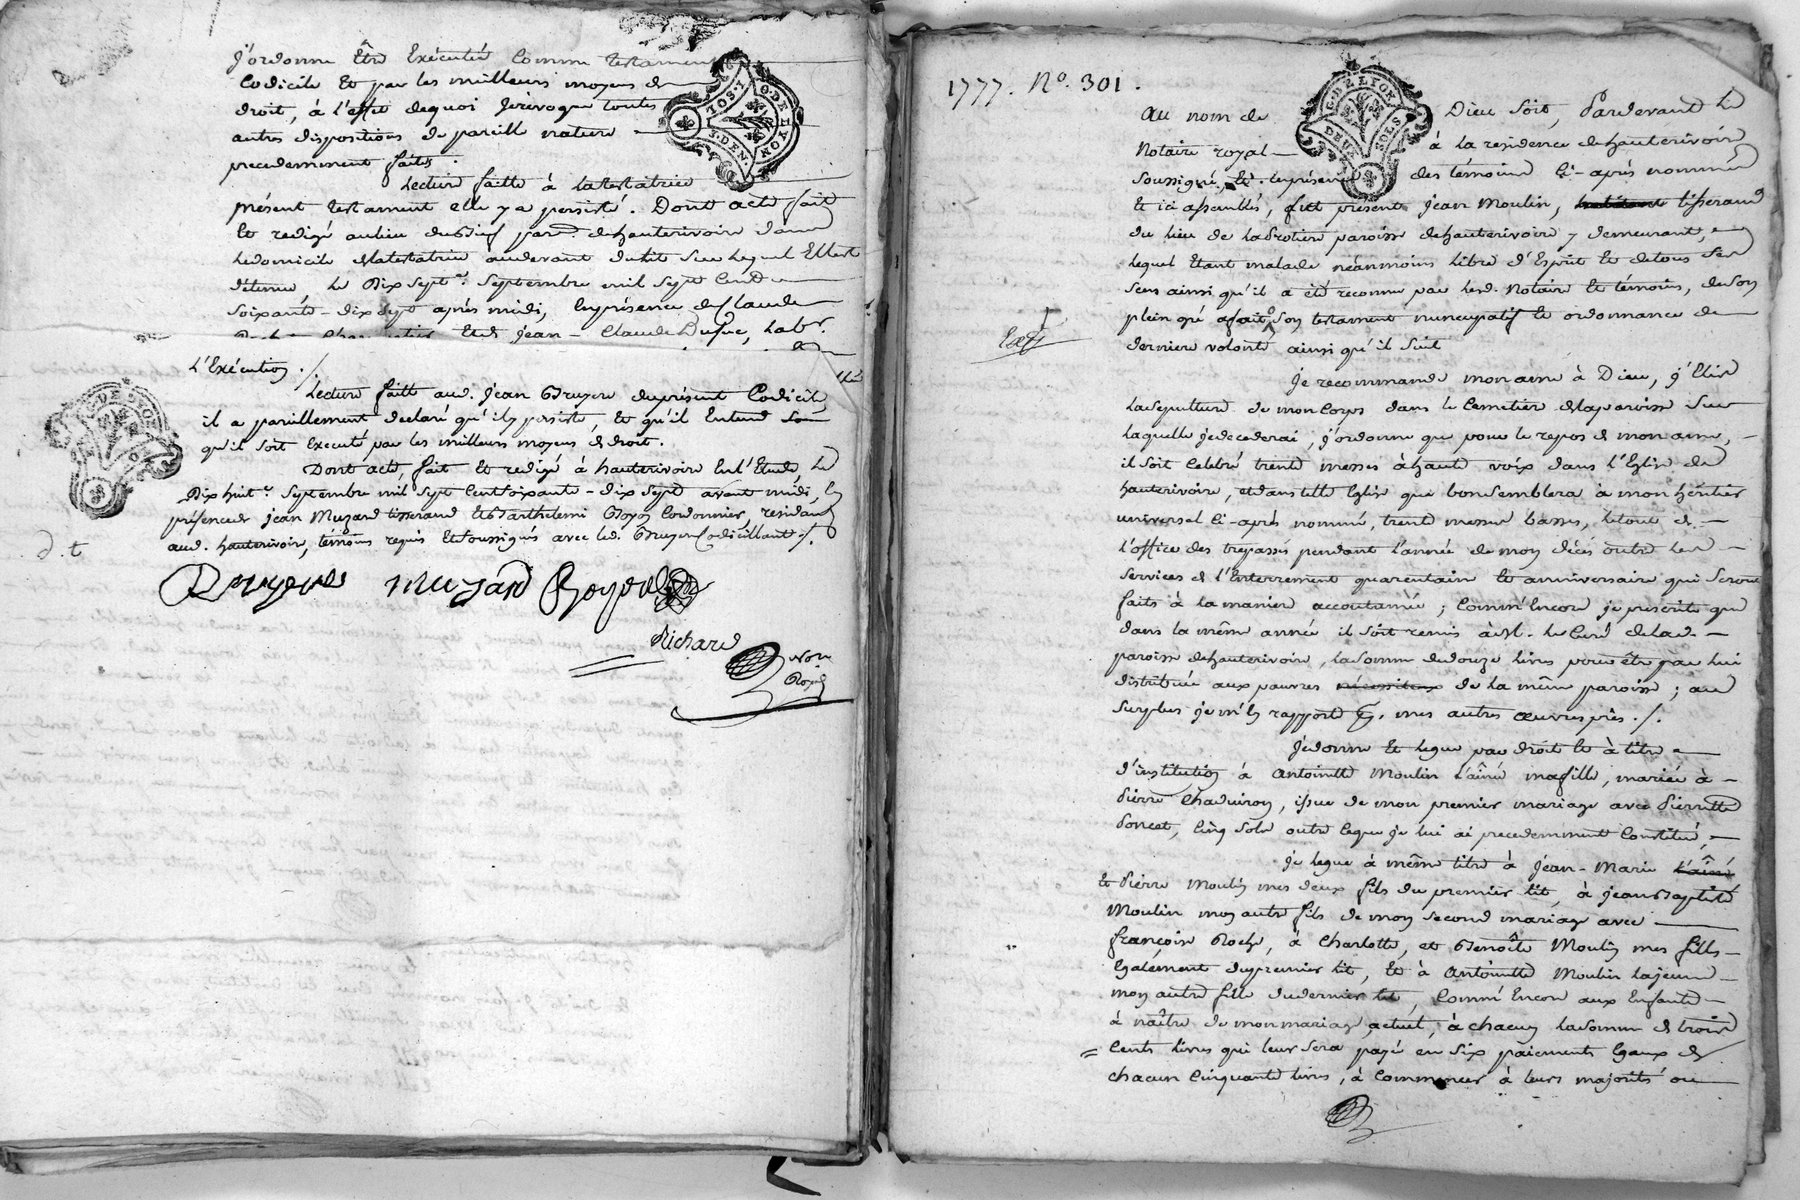 j'ordonne Être Exécuté Comme testament
Codicile Et par les meilleurs moyens de
droit, à l'effet dequoi Jerévoque toutes
autres dispositions de pareille nature
precedemment faites.
Lecture faitte à latestatrice
présent testament elle y a persisté. Dont acte fait
Et redigé aulieu par.se dehauterivoire dans
ledomicile delatestatrice audevant dulit Sur lequel Elle est
détenue le Dix Sept.e Septembre mil Sept Cent
Soixante-dix Sept après midi, Enprésence de Claude
Et de jean-Claude Dufuc, lab.r
L'Exécution ./.
Lecture faitte aud. jean Gruyere duprésent Codicile
il a pareillement declaré qu'il y persiste, Et qu'il Entend
qu'il Soit Executé par les meilleurs moyens de droit.
Dont acte fait Et redigé à hauterivoire En l'Etude le
Dix huit.e Septembre mil Sept CentSoixante-dix Sept avant midi, En
présence de jean Muzard tisserand Et Barthelemi Goyon Cordonnier, residants
aud. hauterivoire, témoins requis EtSoussignés avec led. Gruyer Codicillant ./.
d. t
Muzard
Richard
Not.re
Royal
1777. N.o 301.
G. DE LYON
DEUX SOLS
Au nom de Dieu Soit, Pardevant le
Notaire royal à la residence dehauterivoire
Soussigné, Et Enprésence des témoins Ci-après nommés
Et ici assemblés, fut présent Jean Moulin, tisserand
du lieu de paroisse dehauterivoire y demeurant,
lequel Etant malade néanmoins libre d'Esprit Et detous Ses
Sens ainsi qu'il a été reconnu par lesd. Notaire Et témoins, deSon
plein gré afait Son testament nuncupatif Et ordonnance de
derniere volonté ainsi qu'il Suit
Je recommande mon ame à Dieu, j'Elis
laSepulture de mon Corps dans le Cemetière delaparoisse Sur
laquelle jedecederai, j'ordonne que pour le repos de mon ame,
il Soit Celebré trente messes àhaute voix dans l'Eglise de
hauterivoire, etdanstelle Eglise que bonsemblera à mon héritier
universel Ci-après nommé, trente messes basses, letout de
l'office des trepassés pendant l'année de mon décès outre les
Services de l'Enterrement quarentain Et anniversaire qui Seront
faits à la maniere accoutumée; Comm'Encore je prescrits que
dans la même année il Soit remis àM. le Curé delad.
paroisse dehauterivoire, laSomme dedouze livres pour être par lui
distribuée aux pauvres nécessiteux de la même paroisse; au
Surplus je m'En rapporte mes autres œuvres pies ./.
Jedonne Et legue par droit Et à titre
d'institution à Antoinette Moulin l'aînée mafille, mariée à
Pierre Chaduiron, issue de mon premier mariage avec Pierrette
Poncet, Cinq Sols outre ceque je lui ai precedemment Constitué,
je legue à même titre à Jean-Marie l'aîné
Et Pierre Moulin mes deux fils du premier lit, à jeanBaptiste
Moulin mon autre fils de mon Second mariage avec
françoise Roche, à Charlotte, et Benoîte Moulin mes filles
Egalement dupremier lit, Et à Antoinette Moulin lajeune
mon autre fille dudernier lit, Comm'Encore aux Enfants
à naître de mon mariage actuel, à chacun laSomme de trois
Cents livres qui leur Sera payé en Six paiements Egaux de
chacun Cinquante livres, à Commencer à leurs majorités ou